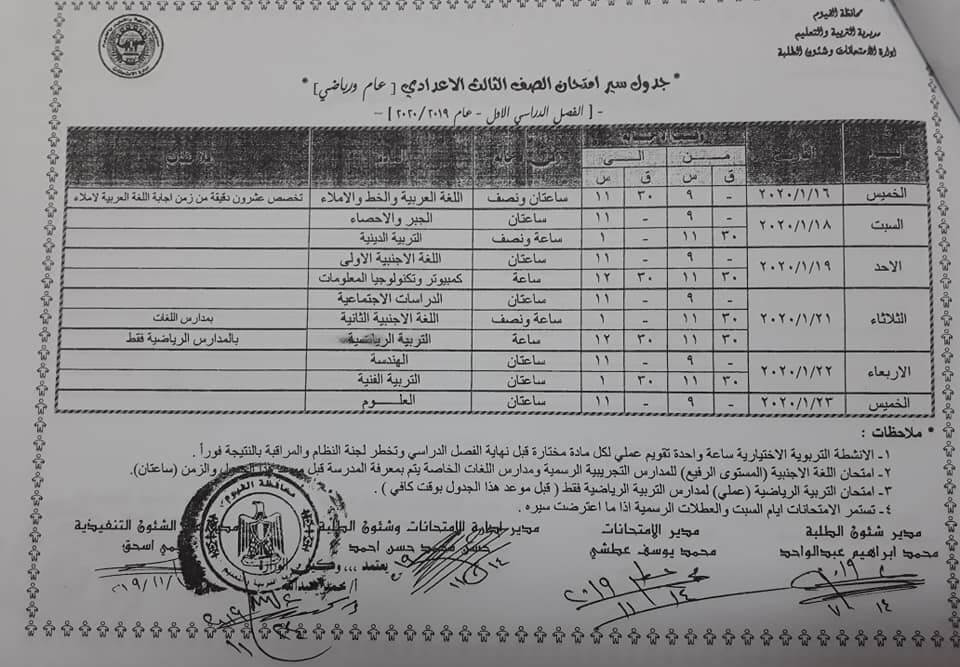 محافظة الفيوم
مديرية التربية والتعليم
ادارة الامتحانات وشئون الطلبة
* جدول سير امتحان الصف الثالث الاعدادي [ عام ورياضي ] *
- [ الفصل الدراسي الاول - عام ٢٠١٩/ ٢٠٢٠ ] -
من الى
ق س ق س
الخميس ٢٠٢٠/١/١٦ - ٩ ٣٠ ١١ ساعتان ونصف اللغة العربية والخط والاملاء تخصص عشرون دقيقة من زمن اجابة اللغة العربية لاملاء
السبت ٢٠٢٠/١/١٨ - ٩ - ١١ ساعتان الجبر والاحصاء
٣٠ ١١ - ١ ساعة ونصف التربية الدينية
الاحد ٢٠٢٠/١/١٩ - ٩ - ١١ ساعتان اللغة الاجنبية الاولى
٣٠ ١١ ٣٠ ١٢ ساعة كمبيوتر وتكنولوجيا المعلومات
الثلاثاء ٢٠٢٠/١/٢١ - ٩ - ١١ ساعتان الدراسات الاجتماعية
٣٠ ١١ - ١ ساعة ونصف اللغة الاجنبية الثانية بمدارس اللغات
٣٠ ١١ ٣٠ ١٢ ساعة التربية الرياضية بالمدارس الرياضية فقط
الاربعاء ٢٠٢٠/١/٢٢ - ٩ - ١١ ساعتان الهندسة
٣٠ ١١ ٣٠ ١ ساعتان التربية الفنية
الخميس ٢٠٢٠/١/٢٣ - ٩ - ١١ ساعتان العلـــوم
* ملاحظات :
١- الانشطة التربوية الاختيارية ساعة واحدة تقويم عملي لكل مادة مختارة قبل نهاية الفصل الدراسي وتخطر لجنة النظام والمراقبة بالنتيجة فوراً .
٢- امتحان اللغة الاجنبية (المستوى الرفيع) للمدارس التجريبية الرسمية ومدارس اللغات الخاصة يتم بمعرفة المدرسة قبل والزمن (ساعتان).
٣- امتحان التربية الرياضية (عملي) لمدارس التربية الرياضية فقط ( قبل موعد هذا الجدول بوقت كافي ) .
٤ - تستمر الامتحانات ايام السبت والعطلات الرسمية اذا ما اعترضت سيره .
مدير شئون الطلبة مدير الامتحانات مدير ادارة الامتحانات وشئون الطلبة الشئون التنفيذية
محمد ابراهيم عبدالواحد محمد يوسف عطشي حسن محمد حسن احمد اسحق
يعتمد ،،،
محافظة الفيوم